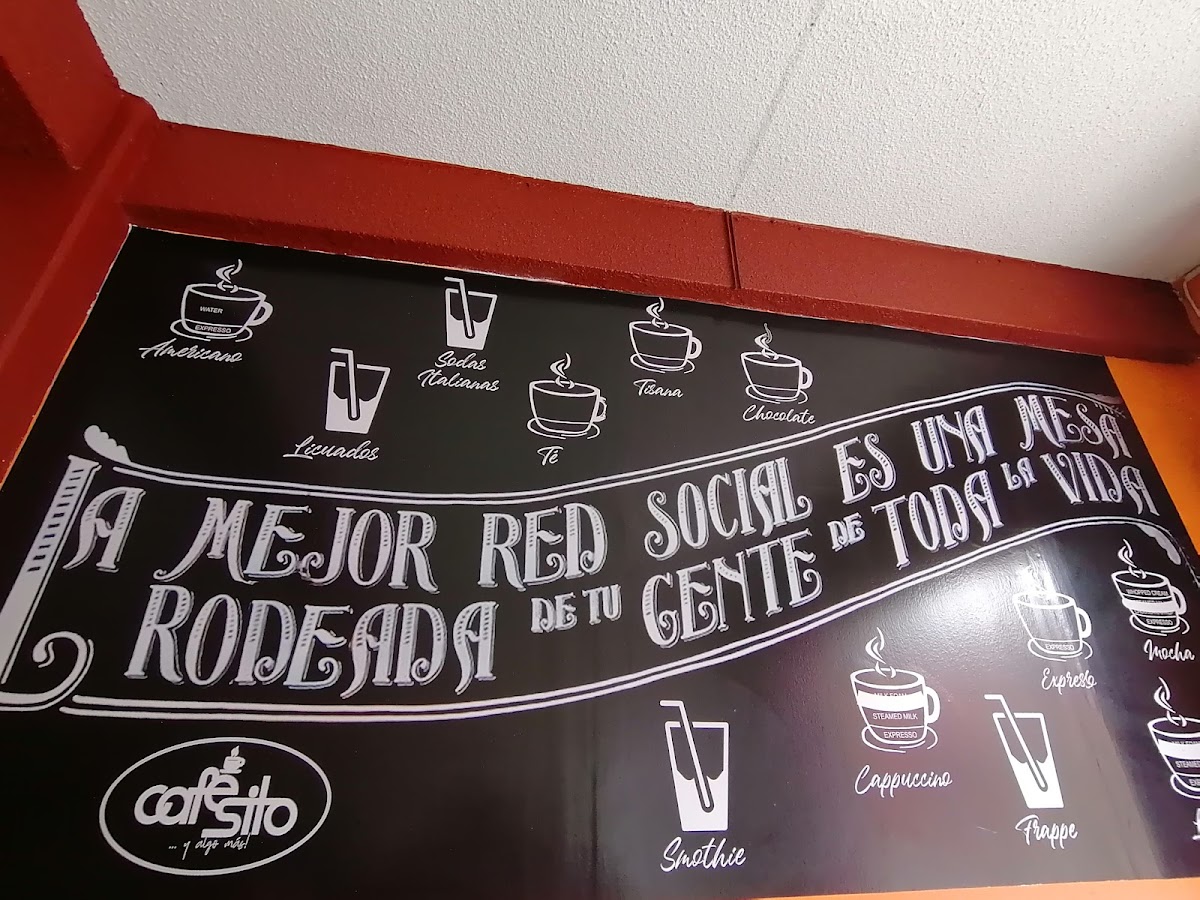 WATER
EXPRESSO
Americano
Licuados
Sodas
Italianas
Té
Tisana
Chocolate
LA MEJOR RED SOCIAL ES UNA MESA
RODEADA DE TU GENTE DE TODA LA VIDA
café
sito
... y algo más!
Smothie
MILK FOAM
STEAMED MILK
EXPRESSO
Cappuccino
Frappe
EXPRESSO
Expresso
WHOPPED CREAM
EXPRESSO
Mocha
STEAMED